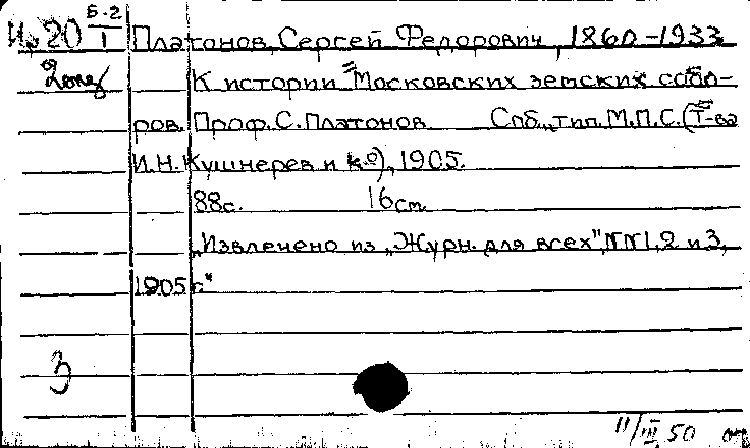 И, 20 Б.2/I Платонов, Сергей Федорович, 1860-1933
К истории Московских земских собо-
ров. Проф. С. Платонов Спб., тип. М.П.С. (Т-ва
И.Н. Кушнерев и Ко), 1905.
88с. 16см
„Извлечено из „Журн. для всех", NN1, 2 и 3,
1905 г."
3
11/III 50